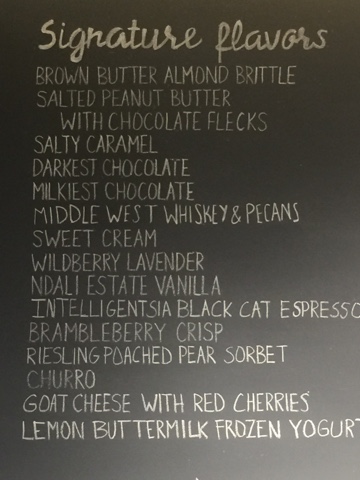 Signature flavors
BROWN BUTTER ALMOND BRITTLE
SALTED PEANUT BUTTER
WITH CHOCOLATE FLECKS
SALTY CARAMEL
DARKEST CHOCOLATE
MILKIEST CHOCOLATE
MIDDLE WEST WHISKEY & PECANS
SWEET CREAM
WILDBERRY LAVENDER
NDALI ESTATE VANILLA
INTELLIGENTSIA BLACK CAT ESPRESSO
BRAMBLEBERRY CRISP
RIESLING POACHED PEAR SORBET
CHURRO
GOAT CHEESE WITH RED CHERRIES
LEMON BUTTERMILK FROZEN YOGURT